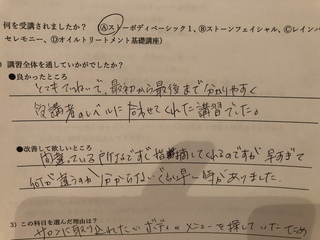 何を受講されましたか? Ⓐストーンボディーベーシック1、Ⓑストーンフェイシャル、Ⓒレイン
セレモニー、Ⓓオイルトリートメント基礎講座)
講習全体を通していかがでしたか?
●良かったところ
とてもていねいで、最初から最後まで分かりやすく
受講者のレベルに合わせてくれた講習でした。
●改善して欲しいところ
間違っている所などすぐ指摘してくれるのですが早すぎて
何が違うのか分からないぐらい早い時がありました。
3) この科目を選んだ理由は?
サロンに取り入れたいボディのメニューを探していたため